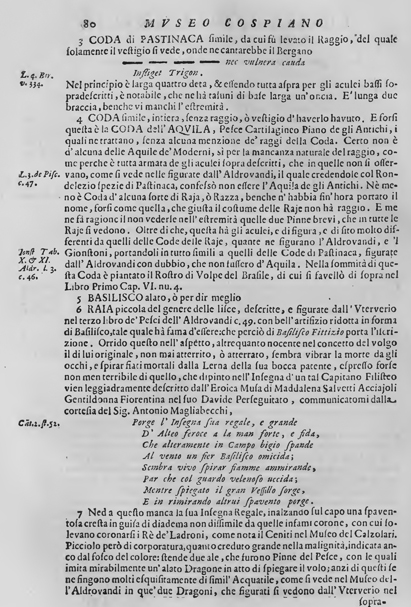 80 MVSEO COSPIANO
3 CODA di PASTINACA simile, da cui fù levato il Raggio, del quale
solamente il vestigio si vede, onde ne cantarebbe il Bergano
nec vulnera cauda
Infliget Trigon.
L. 4. Bes.
v. 334.
Nel principio è larga quattro deta, & essendo tutta aspra per gli aculei bassi so-
pradescritti, è notabile, che ne hà taluni di base larga un'oncia. E' lunga due
braccia, benche vi manchi l'estremità.
4 CODA simile, intiera, senza raggio, ò vestigio d'haverlo havuto. E forsi
questa è la CODA dell'AQVILA, Pesce Cartilagineo Piano de gli Antichi, i
quali ne trattano, senza alcuna menzione de' raggi della Coda. Certo non è
d'alcuna delle Aquile de' Moderni, sì per la mancanza naturale del raggio, co-
me perche è tutta armata de gli aculei sopra descritti, che in quelle non si osser-
L. 3. de Pisc.
c. 47.
vano, come si vede nelle figurate dall'Aldrovandi, il quale credendole col Ron-
delezio spezie di Pastinaca, confessò non essere l'Aquila de gli Antichi. Nè me-
no è Coda d'alcuna sorte di Raja, ò Razza, benche n'habbia sin'hora portato il
nome, forsi come quella, che giusta il costume delle Raje non hà raggio. E me
ne fà ragione il non vederle nell'estremità quelle due Pinne brevi, che in tutte le
Raje si vedono. Oltre di che, questa hà gli aculei, e di figura, e di sito molto dif-
ferenti da quelli delle Code delle Raje, quante ne figurano l'Aldrovandi, e 'l
Jonst Tab.
X. & XI.
Aldr. l. 3.
c. 46.
Gionstoni, portandoli in tutto simili a quelli delle Code di Pastinaca, figurate
dall'Aldrovandi con dubbio, che non fussero d'Aquila. Nella sommità di que-
sta Coda è piantato il Rostro di Volpe del Brasile, di cui si favellò di sopra nel
Libro Primo Cap. VI. nu. 4.
5 BASILISCO alato, ò per dir meglio
6 RAIA piccola del genere delle lisce, descritte, e figurate dall'Vterverio
nel terzo libro de' Pesci dell'Aldrovandi c. 49. con bell'artifizio ridotta in forma
di Basilisco, tale quale hà fama d'essere, che perciò di Basilisco Fittizio porta l'Iscri-
zione. Orrido questo nell'aspetto, altrequanto nocente nel concetto del volgo
il di lui originale, non mai atterrito, ò atterrato, sembra vibrar la morte da gli
occhi, e spirar fiati mortali dalla Lerna della sua bocca patente, espresso forse
non men terribile di quello, che dipinto nell'Insegna d'un tal Capitano Filisteo
vien leggiadramente descritto dall'Eroica Musa di Maddalena Salvetti Acciajoli
Gentildonna Fiorentina nel suo Davide Perseguitato, communicatomi dalla
cortesia del Sig. Antonio Magliabecchi,
Cāt. 2. st. 52.
Porge l'Insegna sua regale, e grande
D'Alleo feroce a la man forte, e fida,
Che altramente in Campo bigio spande
Al vento un fier Basilisco omicida;
Sembra vivo spirar fiamme ammirande,
Par che col guardo velenoso uccida;
Mentre spiegato il gran Vessillo sorge,
E in rimirando altrui spavento porge.
7 Ned a questo manca la sua Insegna Regale, inalzando sul capo una spaven-
tosa cresta in guisa di diadema non dissimile da quelle infami corone, con cui so-
levano coronarsi i Rè de' Ladroni, come nota il Ceniti nel Museo del Calzolari.
Picciolo però di corporatura, quanto creduto grande nella malignità, indicata an-
co dal fosco del colore: stende due ale, che furono Pinne del Pesce, con le quali
imita mirabilmente un'alato Dragone in atto di spiegare il volo; anzi di questi se
ne fingono molti esquisitamente di simil' Acquatile, come si vede nel Museo del-
l'Aldrovandi in que' due Dragoni, che figurati si vedono dall'Vterverio nel
sopra-